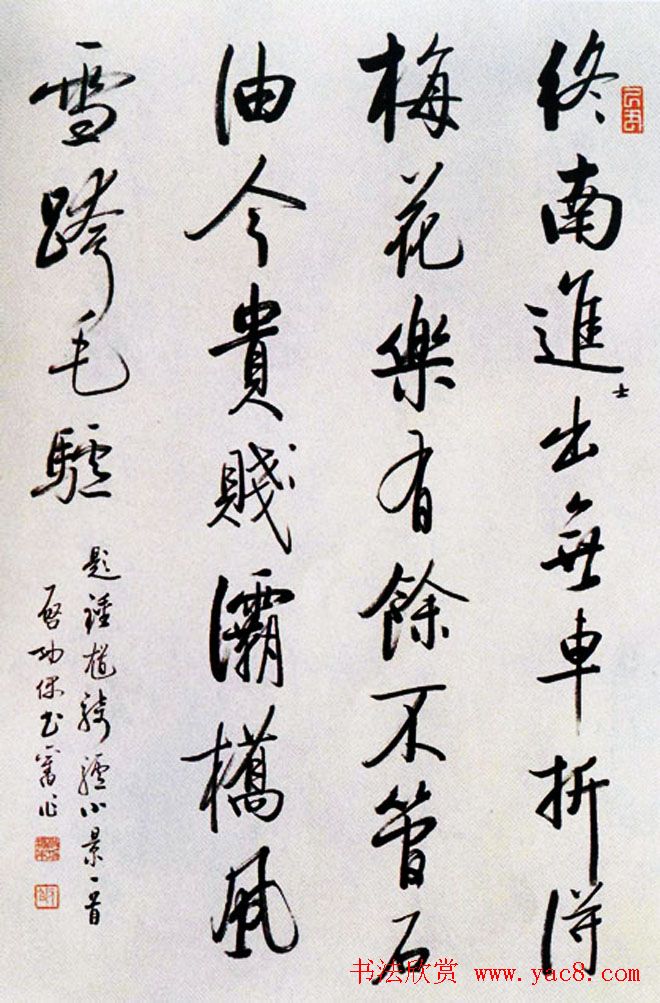 終南進士出無車折得
梅花樂有餘不管石
油今貴賤灞橋風
雪跨毛驢
題鍾馗騎驢小景一首
啓功書舊作
书法欣赏 www.yac8.com